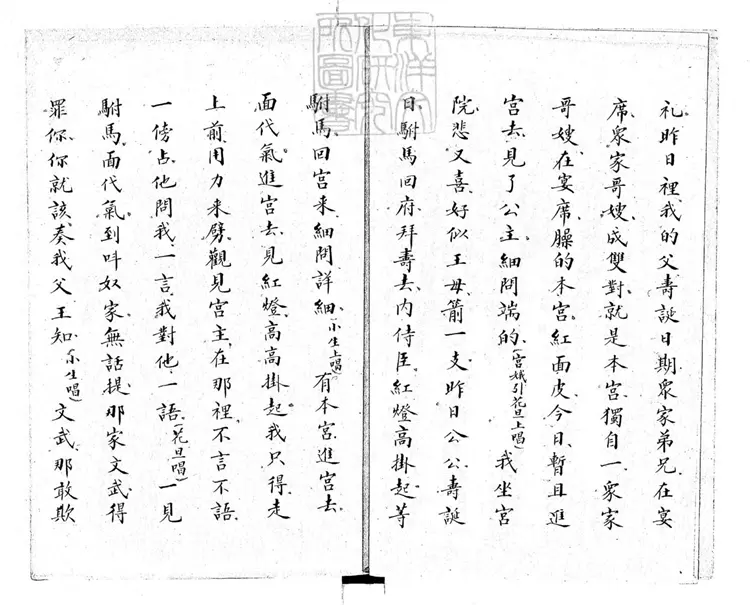 礼昨日裡我的父壽誕日期衆家弟兄在宴
席衆家哥嫂成雙對就是本宮獨自一衆家
哥嫂在宴席臊的本宮紅面皮今日暫且進
宮去見了公主細問端的(宮娥引花旦上唱)我坐宮
院悲又喜好似王母箭一支昨日公公壽誕
日駙馬回府拜壽去内侍臣紅燈高掛起等
駙馬回宮来細問詳細(小生上唱)有本宮進宮去
面代氣進宮去見紅燈高高掛起我只得走
上前用力来劈觀見宮主在那裡不言不語
一傍占他問我一言我對他一語(花旦唱)一見
駙馬面代氣到呌奴家無話提那家文武得
罪你你就該奏我父王知(小生唱)文武那敢欺
東洋文化研究所圖書